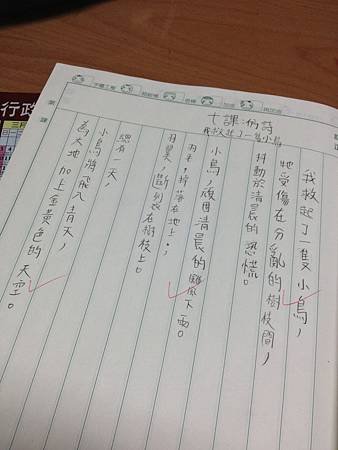 七課:仿詩
我救起了一隻小鳥
我救起了一隻小鳥,
牠受傷在分亂的樹枝間,
抖動於清晨的恐慌。
小鳥 清晨的颶風下面。
羽毛,掉落在地上,
羽翼,斷裂在樹枝上。
總有一天,
小鳥將飛入青天,
為大地加上金黃色的天空。
行政
三月